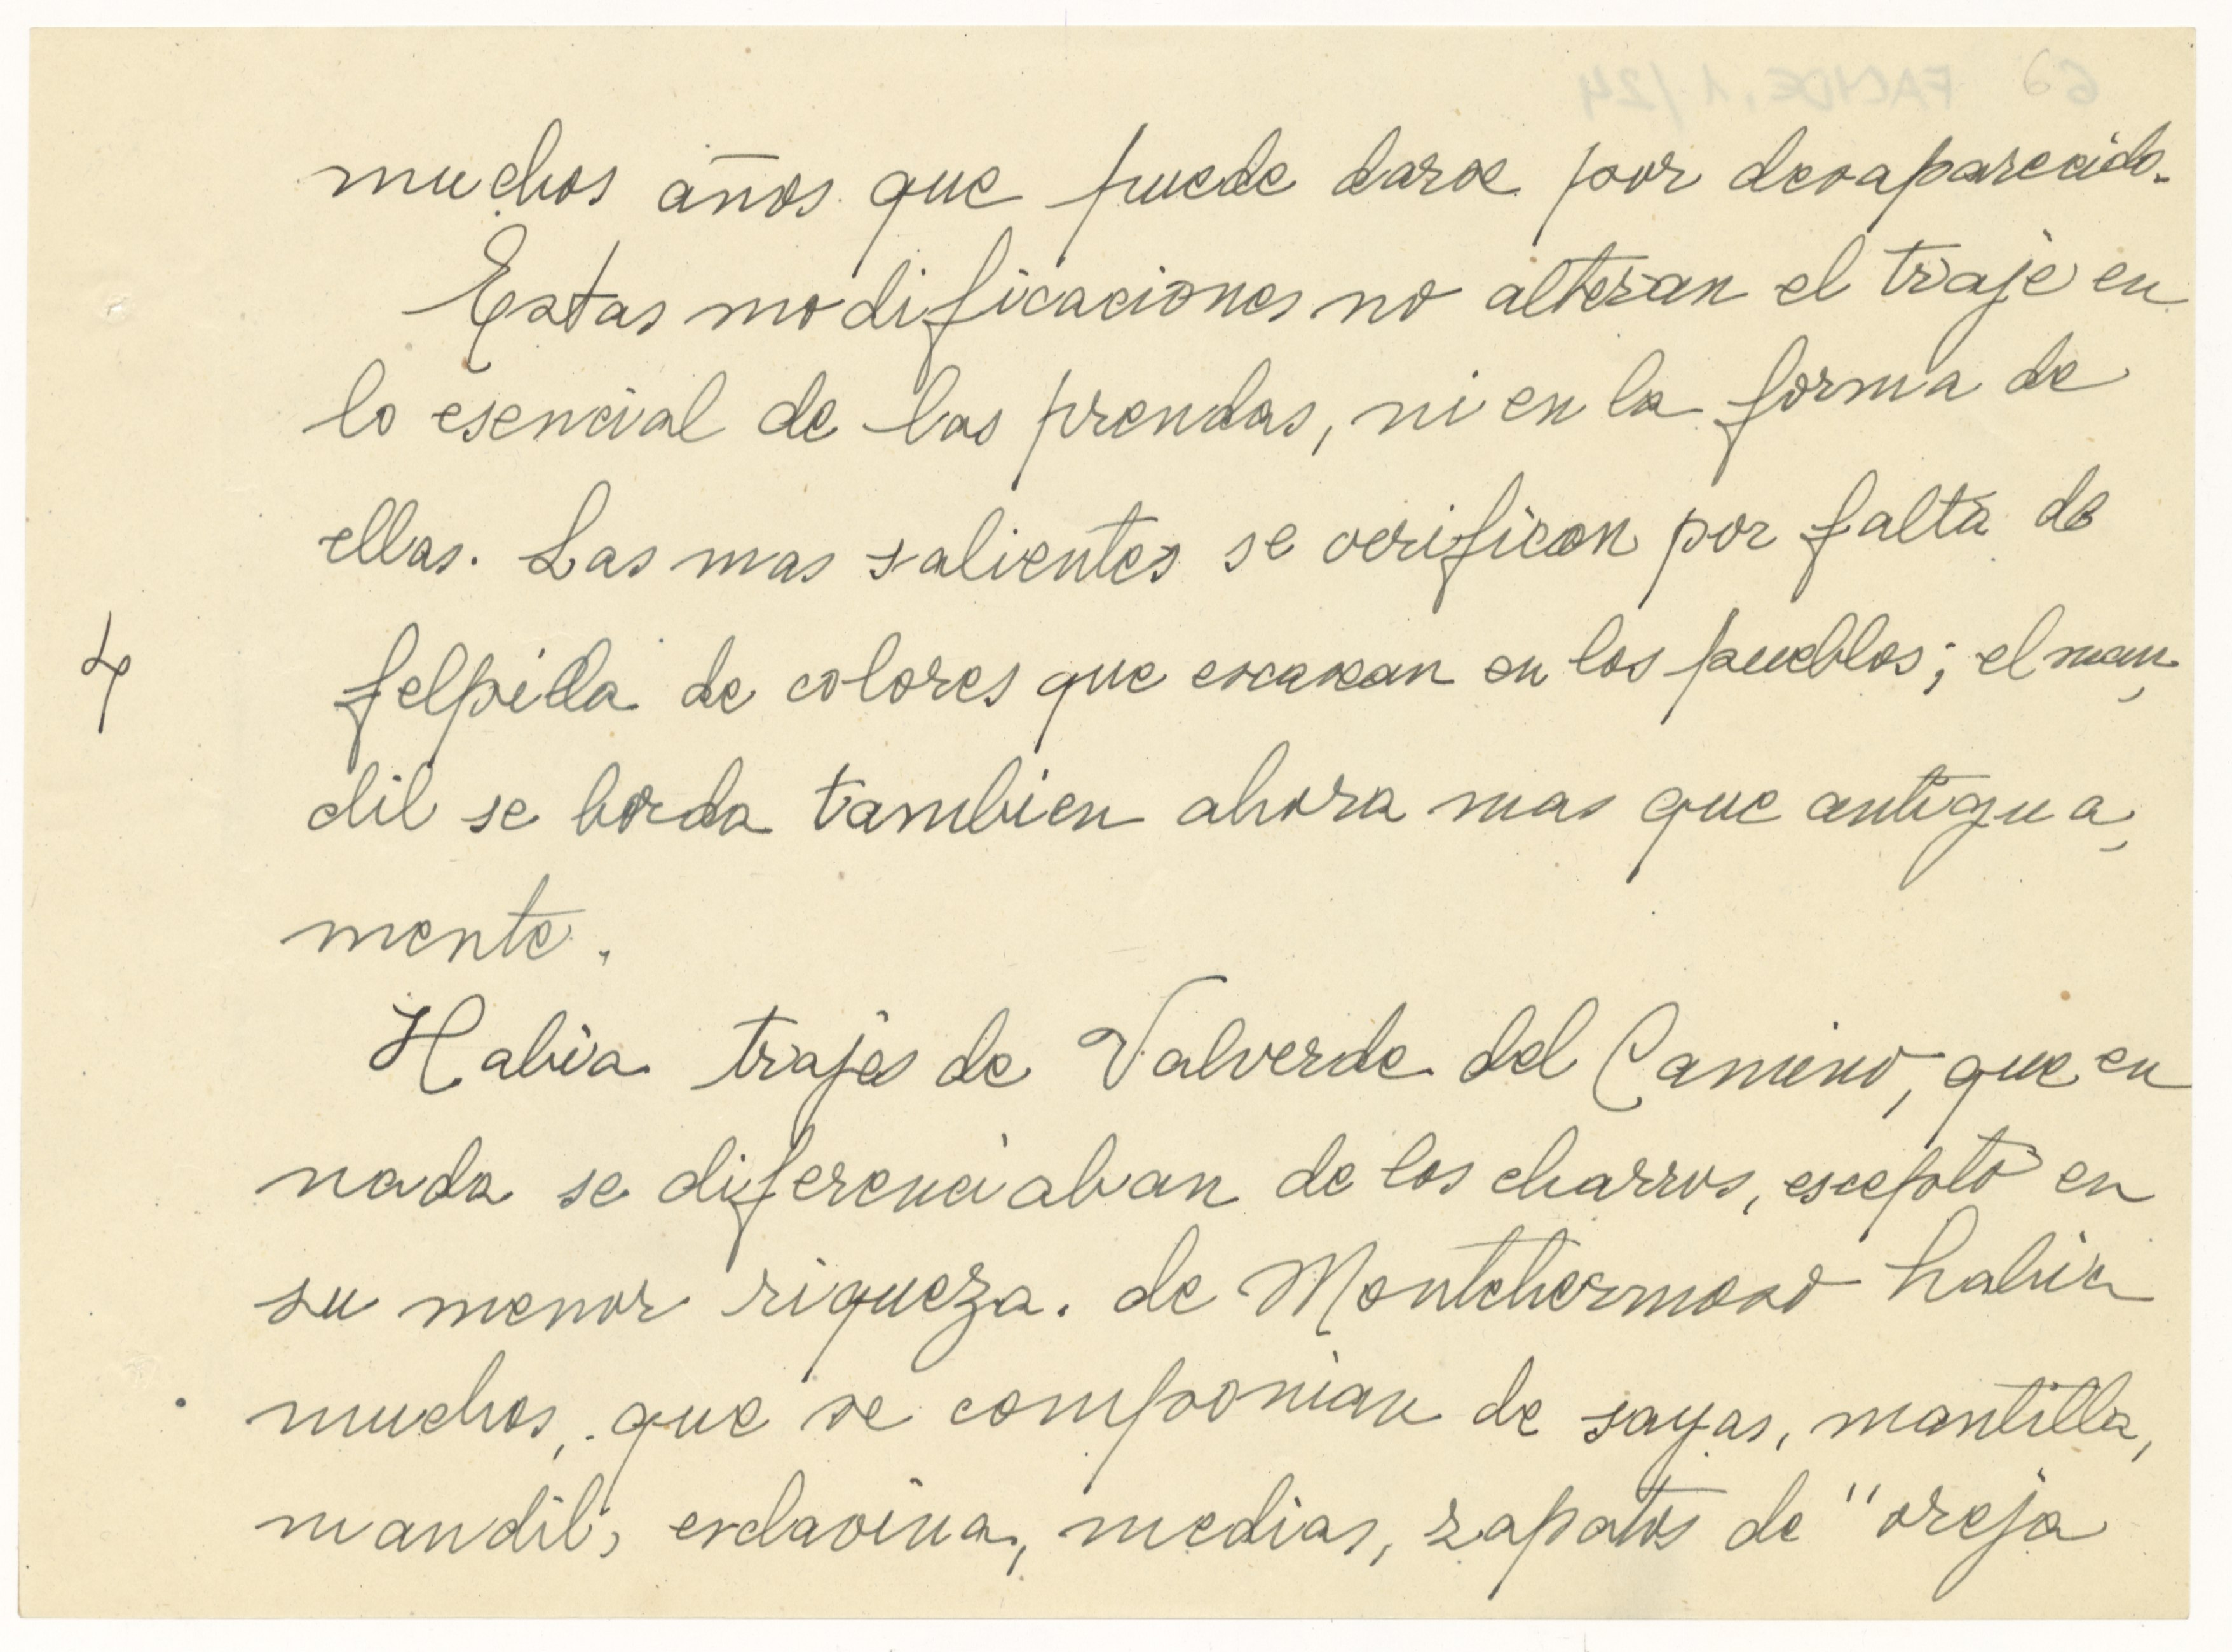 muchos años que puede darse por desaparecido.
Estas modificaciones no alteran el traje en
lo esencial de las prendas, ni en la forma de
ellas. Las mas salientes se verifican por falta de
4
felpilla de colores que escasean en los pueblos; el man-
dil se borda tambien ahora mas que antigua-
mente.
Habia trajes de Valverde del Camino, que en
nada se diferenciaban de los charros, escepto en
su menor riqueza. de Montehermoso habia
muchos, que se componian de sayas, mantilla,
mandil, esclavina, medias, zapatos de "oreja